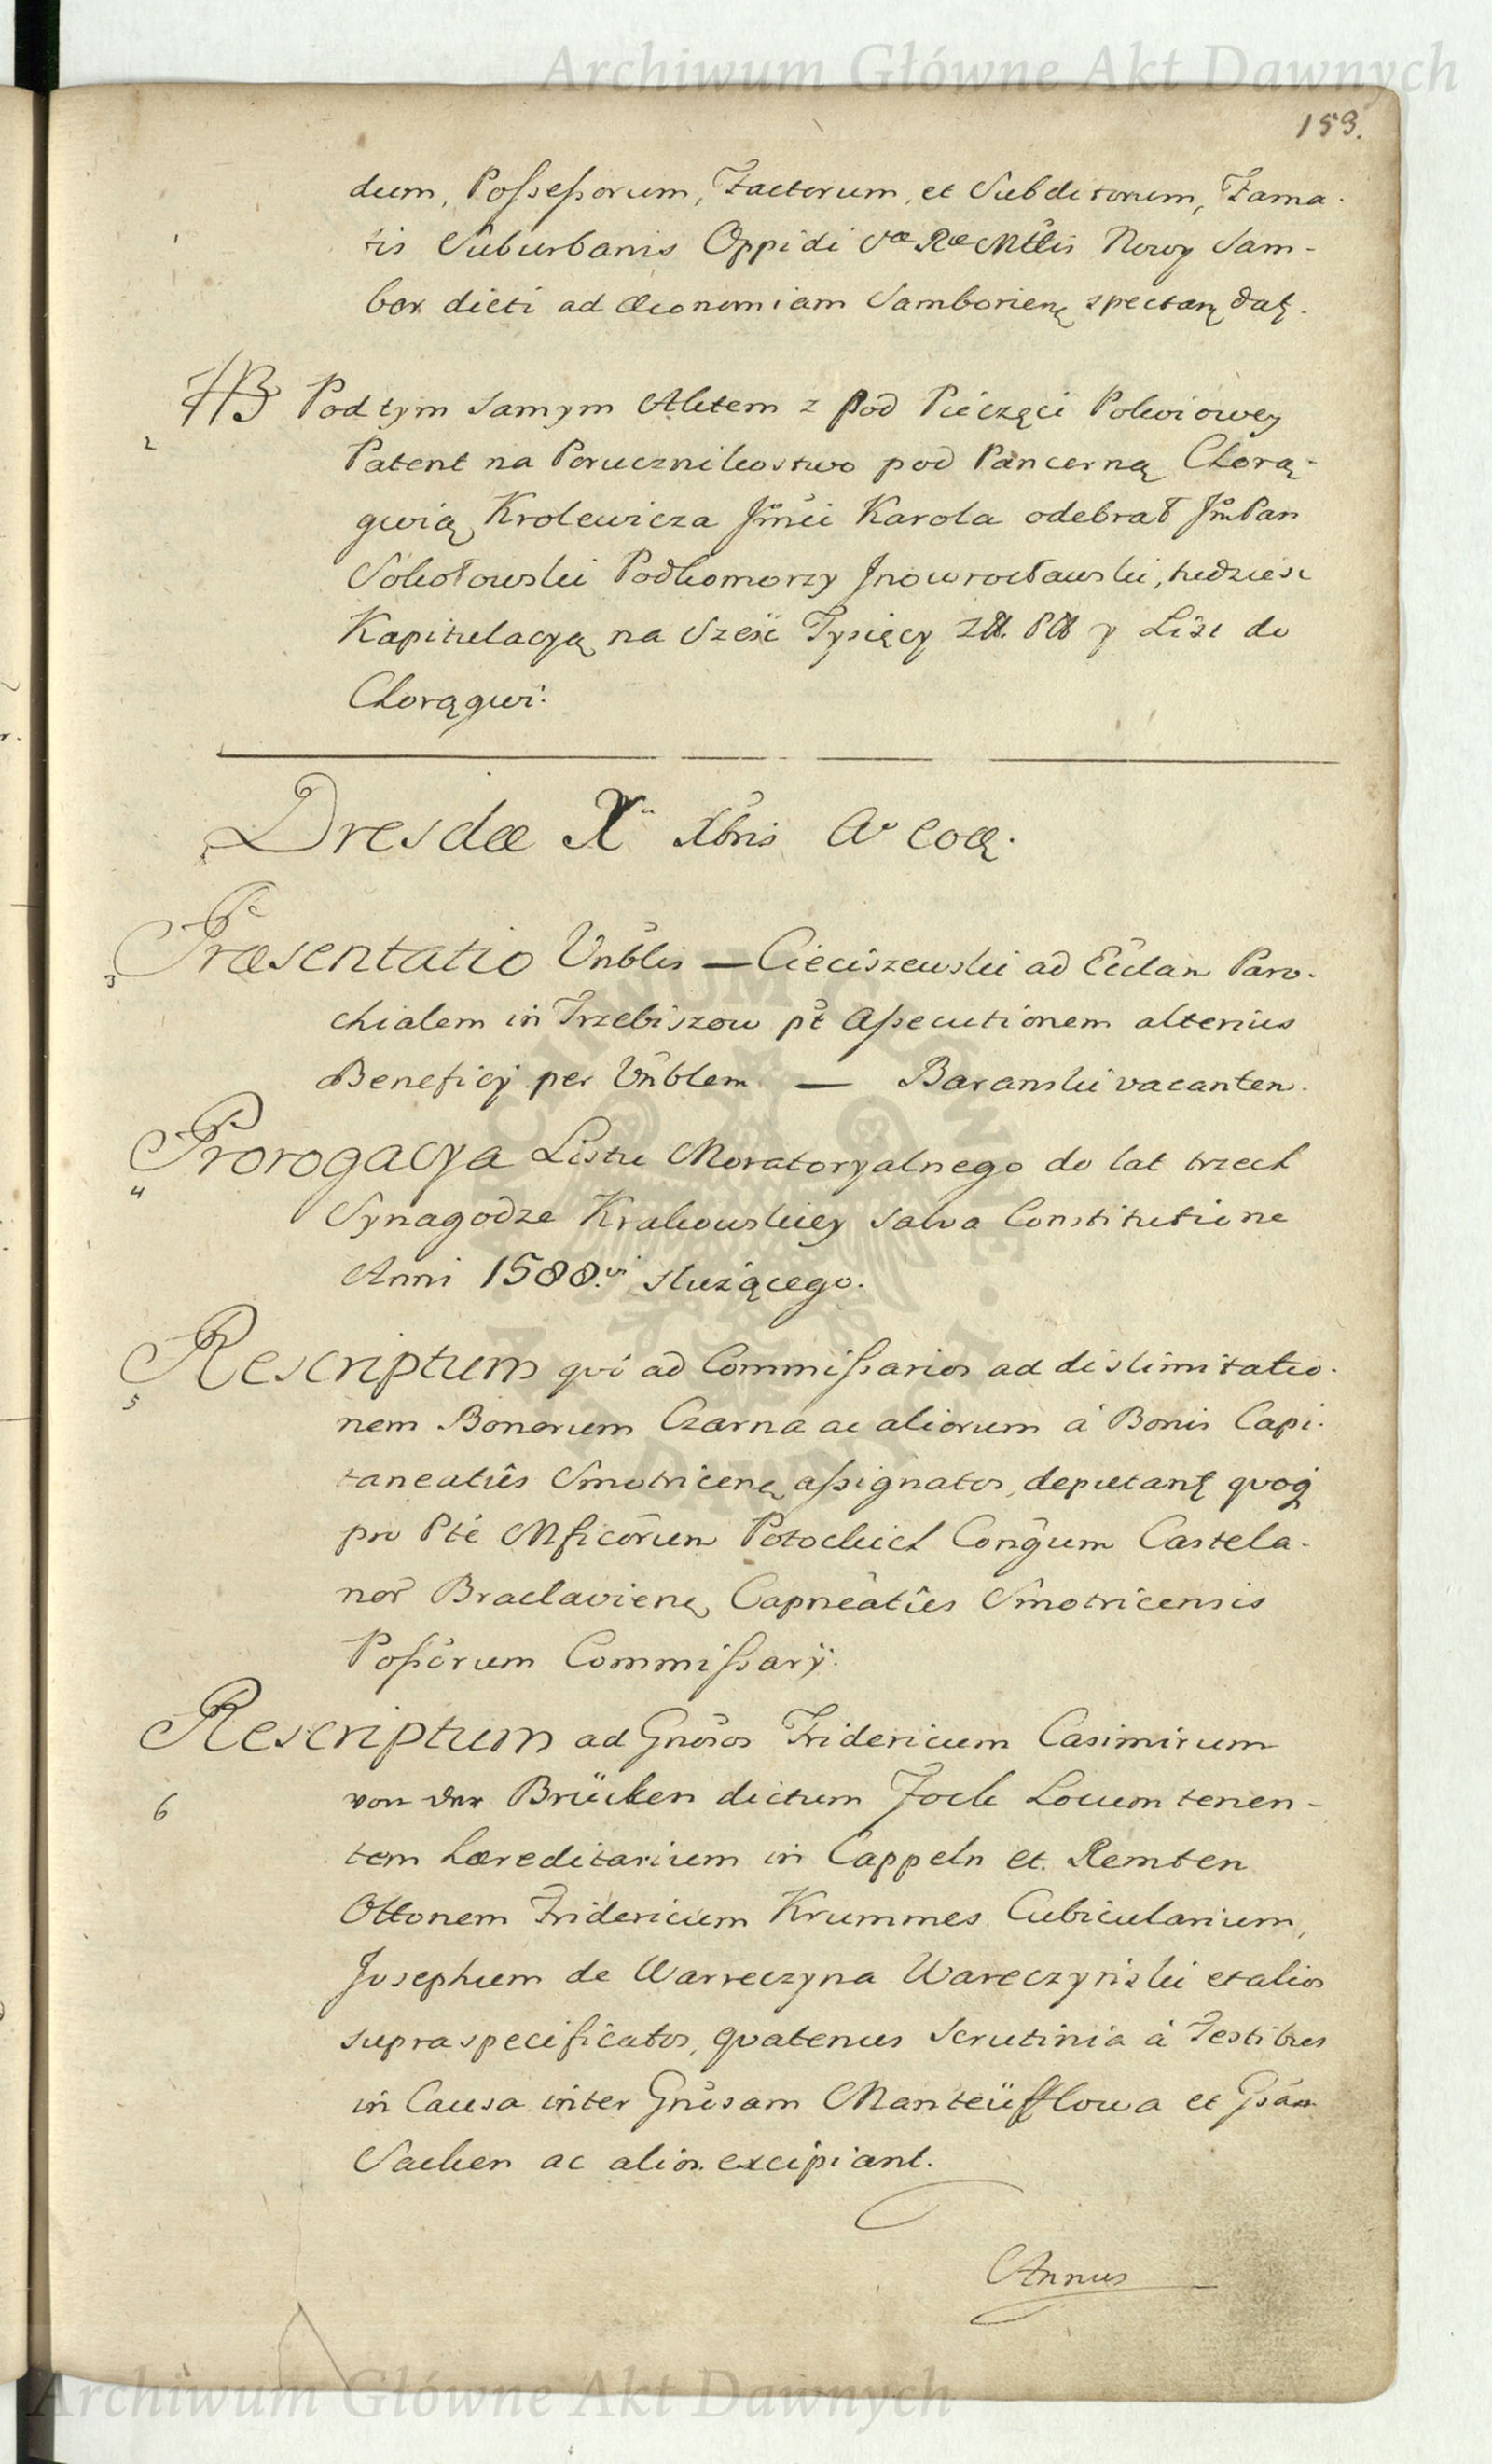 Archiwum Główne Akt Dawnych
153.
dum, Possessorum, Factorum, et Subditorum, Fama-
tis Suburbanis Oppidi Sæ Ræ Mttis Nowy Sam-
bor dicti ad Œconomiam Samborien̨ spectan̨ dat̨.
NB Pod tym samym Aktem z pod Pieczęci Pokoiowey
2
Patent na Porucznikostwo pod Pancerną Chorą-
gwią Krolewicza Jmći Karola odebrał Jm̃ Pan
Sokołowski Podkomorzy Jnowrocławski, tudziesz
Kapitulacyą na Sześć Tysięcy Złł. Płł y List do
Chorągwi.
Dresdæ X XBris Aº eoą.
Præsentatio Vnblis — Cieciszewski ad Eccłan Paro-
3
chialem in Trzebiszow p̃t Assecutionem alterius
Beneficij per Vnblem — Baranski vacanten.
Prorogacya Listu Moratoryalnego do lat trzech
4
Synagodze Krakowskiey salva Constitutione
Anni 1588.vi służącego.
Rescriptum qvi ad Commissarios ad dislimitatio-
5
nem Bonorum Czarna ac aliorum à Bonis Capi-
taneatûs Smotricen̨ assignatos, deputant̨ qvoq̨
pro Pte Mficorum Potockich Congum Castela-
nor̃ Braclavien̨, Capneatûs Smotricensis
Possorum Commissarÿ.
Rescriptum ad Gnosos Fridericum Casimirum
6
von der Brücken dictum Fock Locumtenen-
tem hæreditarium in Cappeln et Remten
Ottonem Fridericum Krummes Cubicularium,
Josephum de Warreczyna Wareczyński et alios
supraspecificatos, qvatenus Scrutinia à Testibus
in Causa inter Gnosam Manteüfflowa et Gsam
Sacken ac alios excipiant.
Annus
Archiwum Główne Akt Dawnych